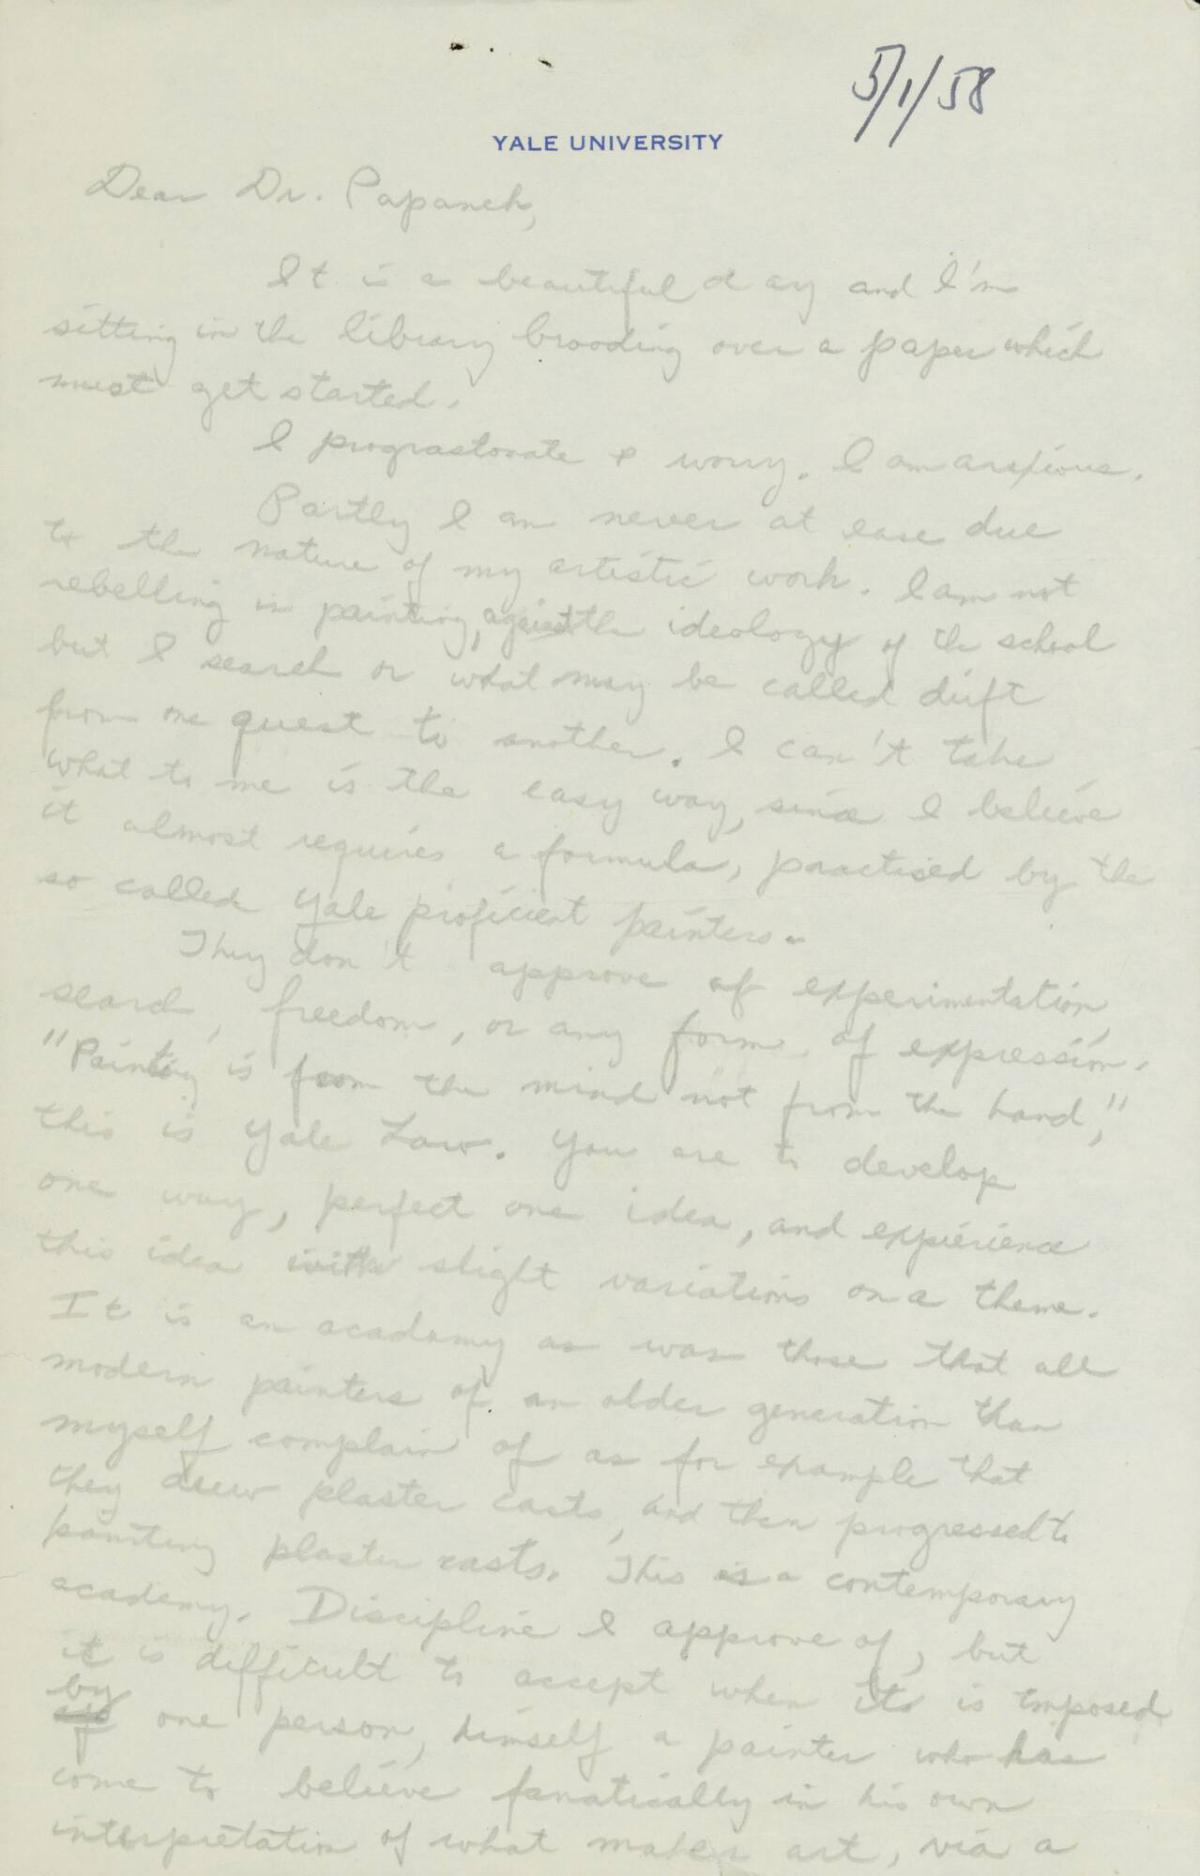 5/1/58
YALE UNIVERSITY
Dear Dr. Papanek,
It is a beautiful day and I'm
sitting in the library brooding over a paper which
must get started.
I prograstonate & worry. I am anxious.
Partly I am never at ease due
to the nature of my artistic work. I am not
rebelling in painting, against the ideology of the school
but I search or what may be called drift
from one quest to another. I can't take
what to me is the easy way, since I believe
it almost requires a formula, practised by the
so called Yale proficient painters.
They don't approve of experimentation,
search, freedom, or any form of expression.
"Painting is from the mind not from the hand,"
this is Yale Law. You are to develop
one way, perfect one idea, and experience
this idea with slight variations on a theme.
It is an academy as was those that all
modern painters of an older generation than
myself complain of as for example that
they drew plaster casts, and then progressed to
painting plaster casts. This is a contemporary
academy. Discipline I approve of, but
it is difficult to accept when its is imposed
by one person, himself a painter who has
come to believe fanatically in his own
interpretation of what makes art, via a